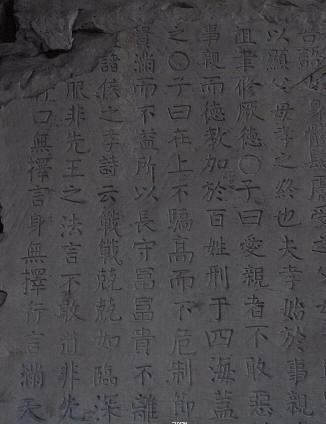 身體髮膚受之
以顯父母孝之終也夫孝始於事親
聿修厥德〇子曰愛親者不敢惡
事親而德教加於百姓刑于四海蓋
之〇子曰在上不驕高而不危制節
滿而不溢所以長守冨冨貴不離
諸侯之孝詩云戰戰兢兢如臨深
服非先王之法言不敢道非先
口無擇言身無擇行言滿天